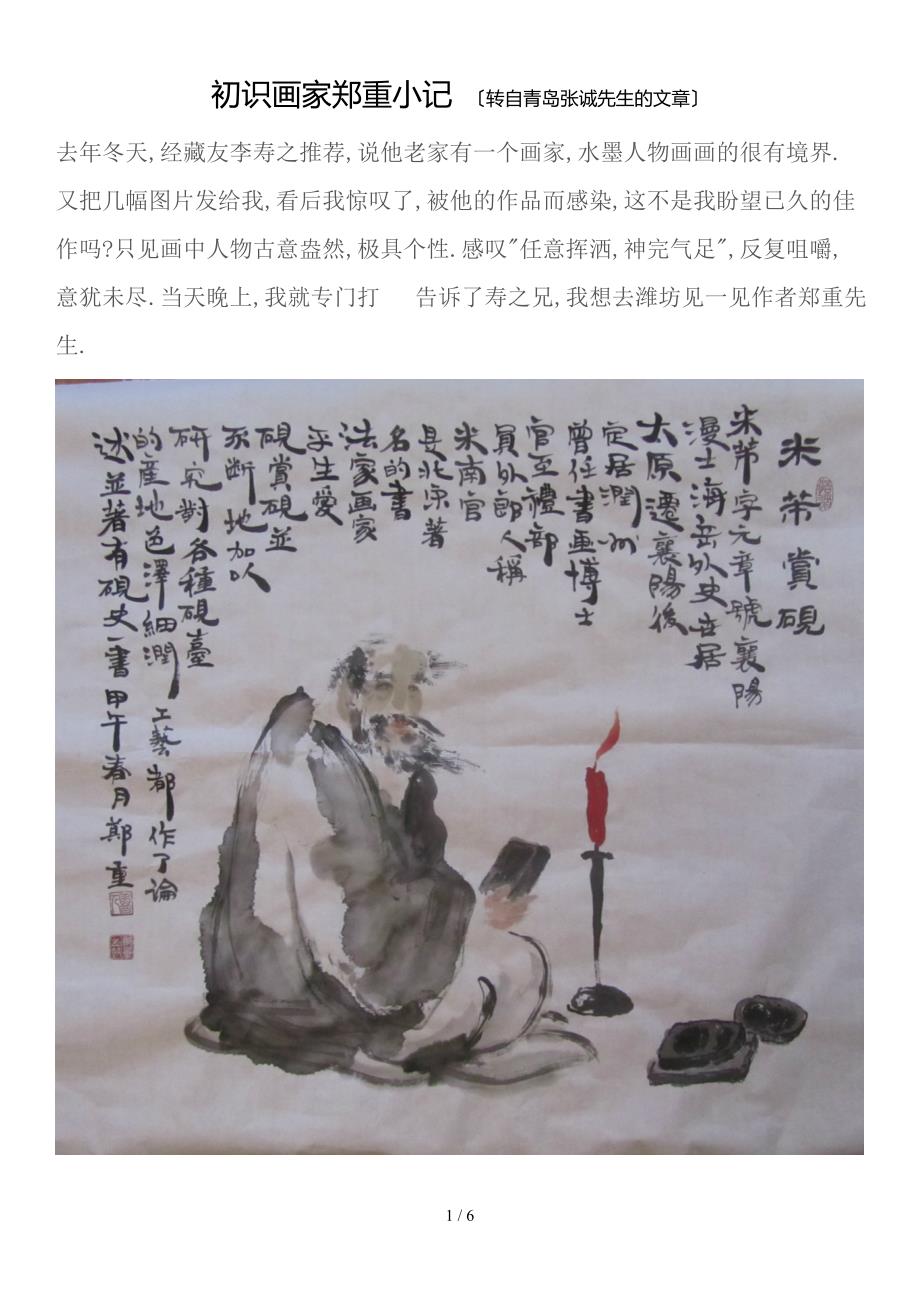 初识画家郑重小记 〔转自青岛张诚先生的文章〕
去年冬天,经藏友李寿之推荐,说他老家有一个画家,水墨人物画画的很有境界.
又把几幅图片发给我,看后我惊叹了,被他的作品而感染,这不是我盼望已久的佳
作吗?只见画中人物古意盎然,极具个性.感叹"任意挥洒,神完气足",反复咀嚼,
意犹未尽.当天晚上,我就专门打 告诉了寿之兄,我想去潍坊见一见作者郑重先
生.
米芾賞硯
米芾字元章號襄陽
漫士海岳外史世居
太原遷襄陽後
定居潤州
曾任書画博士
官至禮部
員外郎人稱
米南宫
是北宋著
名的書
法家画家
平生愛
硯賞硯並
不断地加以
研究對各種硯臺
的產地色澤細潤工藝都作了論
述並著有硯史一書甲午春月鄭重
1 / 6